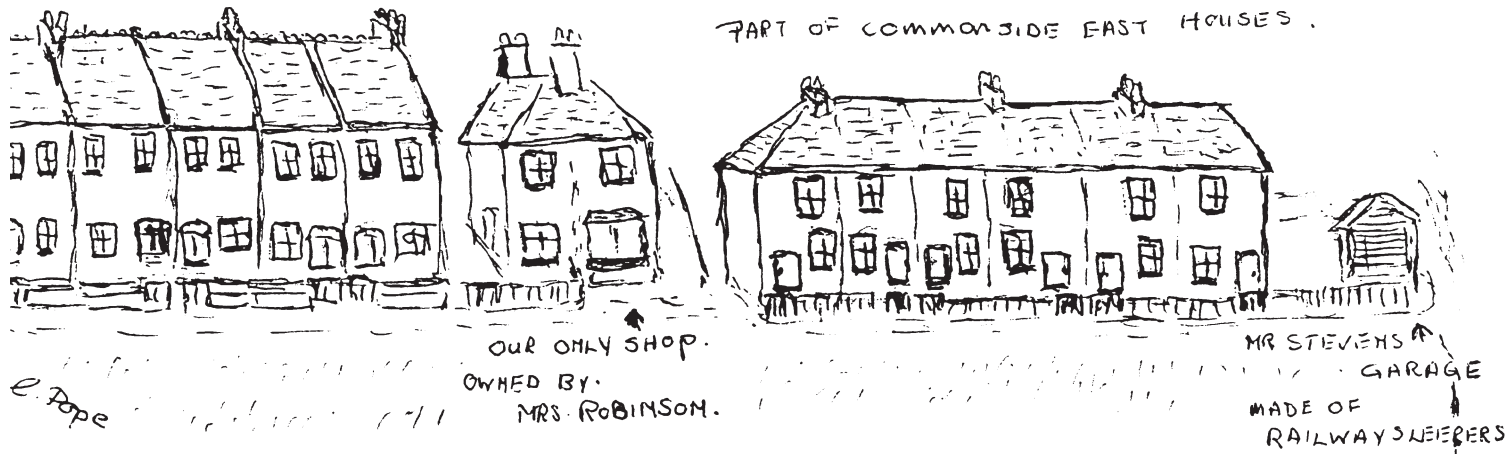 PART OF COMMONSIDE EAST HOUSES.
OUR ONLY SHOP.
OWNED BY.
MRS. ROBINSON.
MR STEVENS
GARAGE
MADE OF
RAILWAY SLEEPERS
E. Pope